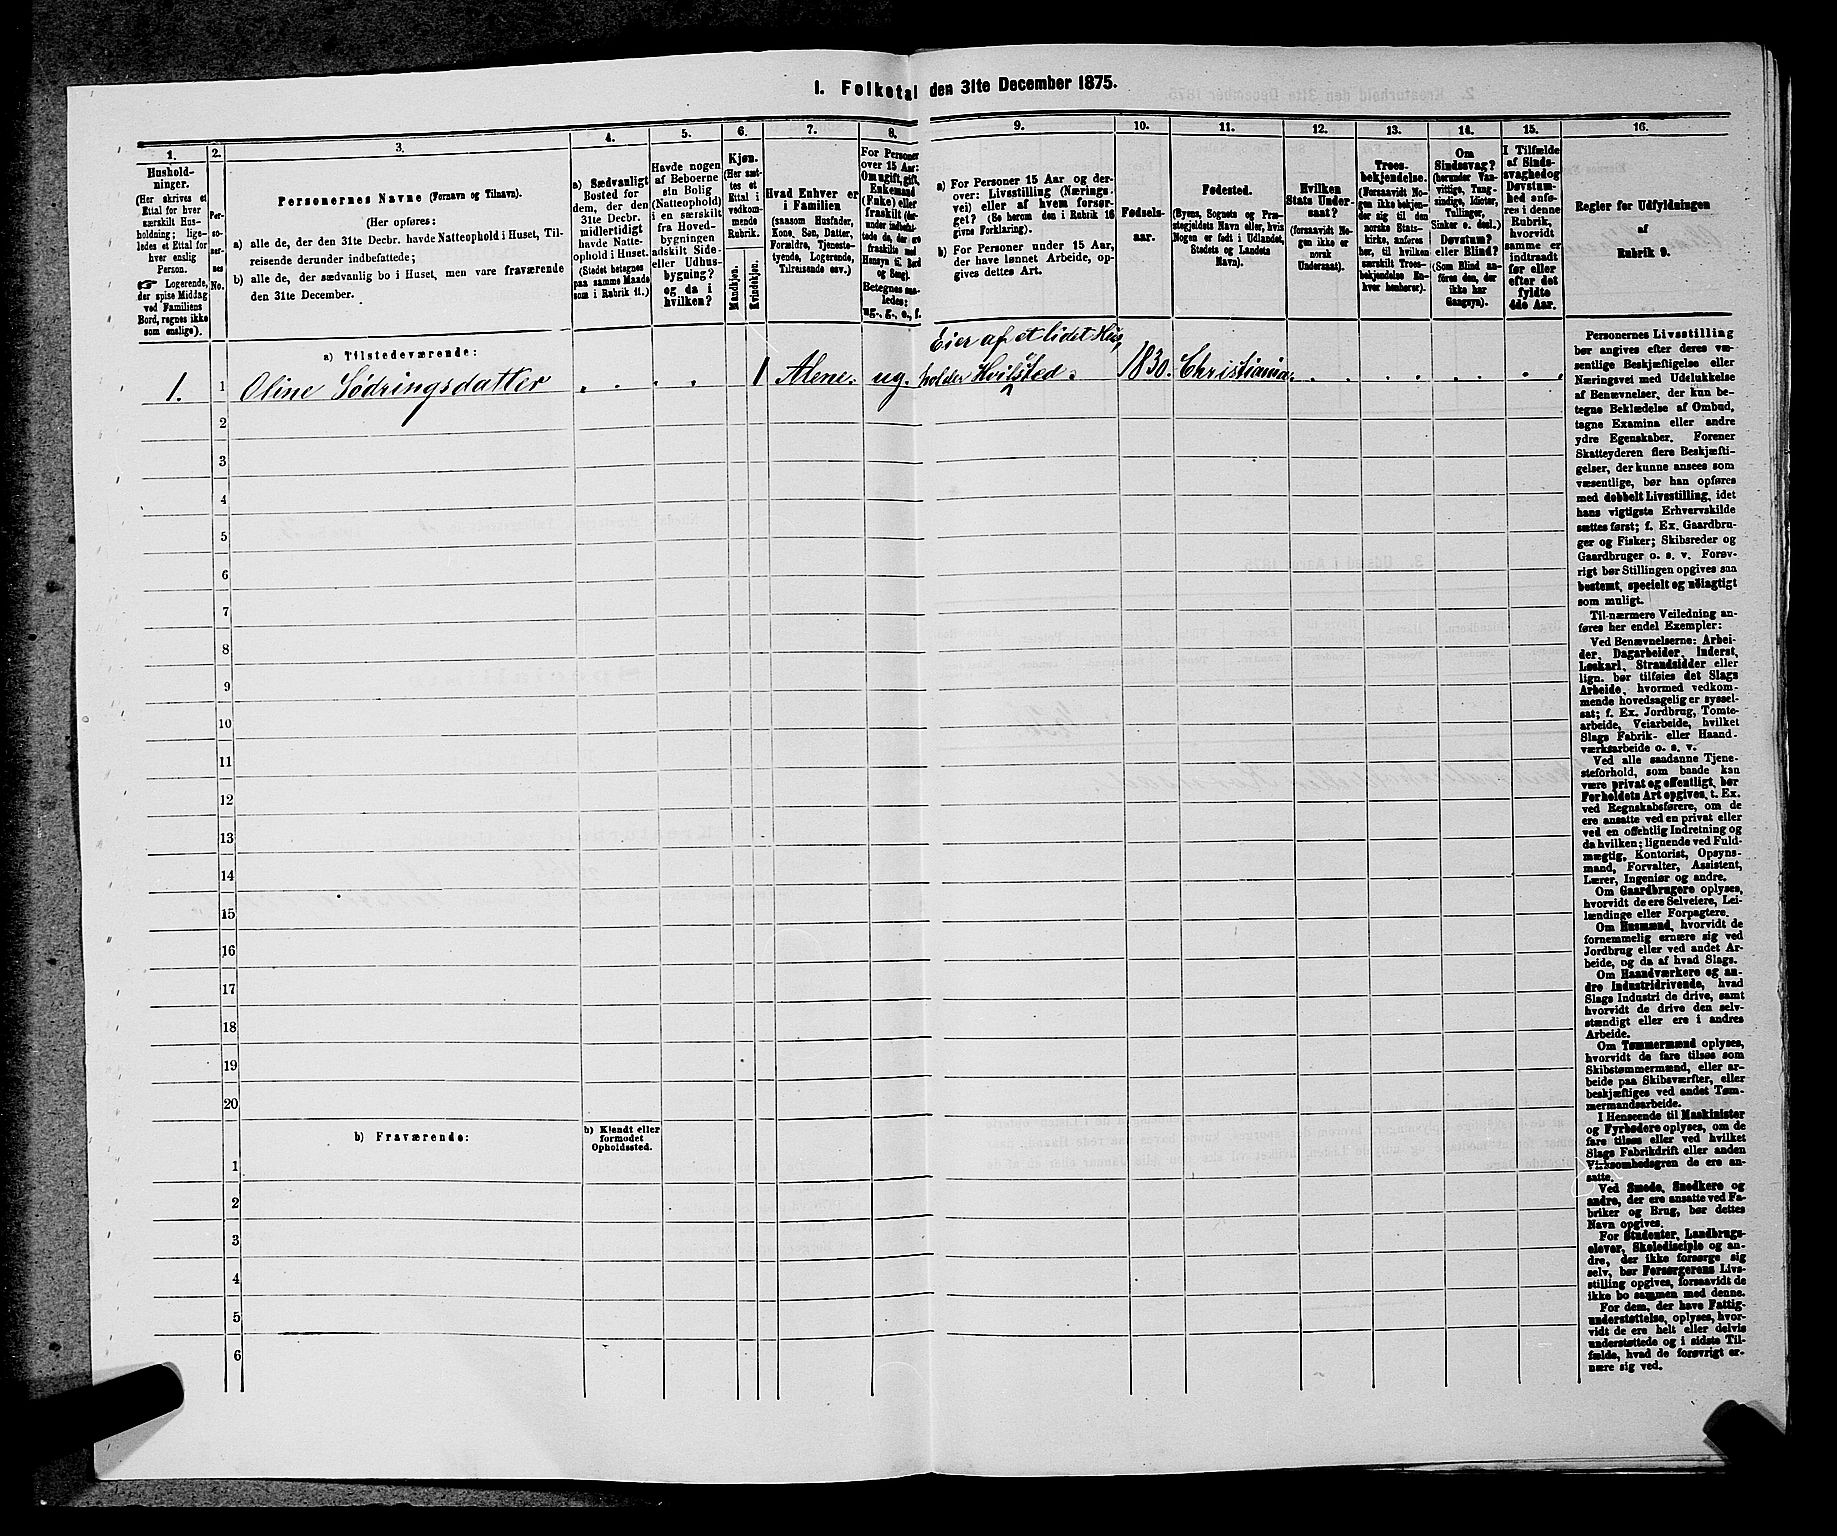 1. Folketal den 31te December 1875.
1.
Hushold-
ninger.
(Her skrives et
Ettal for hver
særskilt Hus-
holdning; lige-
ledes et Ettal for
hver enslig
Person.
☞ Logerende,
der spise Middag
ved Familiens
Bord, regnes ikke
som enslige).
2.
Per-
so-
ner-
nes
No.
3.
Personernes Navne (Fornavn og Tilnavn).
(Her opføres:
a) alle de, der den 31te Decbr. havde Natteophold i Huset, Til-
reisende derunder indbefattede;
b) alle de, der sædvanlig bo i Huset, men vare fraværende
den 31te December.
4.
a) Sædvanligt
Bosted for
dem, der den
31te Decbr.
midlertidigt
havde Natte-
ophold i Huset.
(Stedet betegnes
paa samme Maade
som i Rubrik 11.)
5.
Havde nogen
af Beboerne
sin Bolig
(Natteophold)
i en særskilt
fra Hoved-
bygningen
adskilt Side-
eller Udhus-
bygning?
og da i
hvilken?
6.
Kjøn.
(Her sæt-
tes et
Ettal i
vedkom-
mende
Rubrik.
Mandkjøn.
Kvindekjøn.
7.
Hvad Enhver er
i Familien
(saasom Husfader,
Kone, Søn, Datter,
Forældre, Tjeneste-
tyende, Logerende,
Tilreisende osv.)
8.
For Personer
over 15 Aar:
Om ugift, gift,
Enkemand
(Enke) eller
fraskilt (der-
under indbefat-
tede de, der ere
fraskilte med
Hensyn til Bord
og Seng).
Betegnes saa-
ledes:
ug., g., e., f.
9.
a) For Personer 15 Aar og der-
over: Livsstilling (Nærings-
vei) eller af hvem forsør-
get? (Se herom den i Rubrik 16
givne Forklaring).
b) For Personer under 15 Aar,
der have lønnet Arbeide, op-
gives dettes Art.
10.
Fødsels-
aar.
11.
Fødested.
(Byens, Sognets og Præ-
stegjeldets Navn eller, hvis
Nogen er født i Udlandet,
Stedets og Landets
Navn).
12.
Hvilken
Stats Under-
saat?
(forsaavidt No-
gen ikke er
norsk
Undersaat).
13.
Troes-
bekjendelse.
(Forsaavidt No-
gen ikke bekjen-
der sig til den
norske Stats-
kirke, anføres
her, til hvilken
særskilt Troes-
bekjendelse En-
hver henhører).
14.
Om
Sindssvag?
(herunder Van-
vittige, Tung-
sindige, Idioter,
Tullinger,
Sinker o. desl.)
Døvstum?
eller Blind?
(Som Blind an-
føres den, der
ikke har
Gangsyn).
15.
I Tilfælde
af Sinds-
svaghed og
Døvstum-
hed anfø-
res i denne
Rubrik,
hvorvidt
samme er
indtraadt
før eller
efter det
fyldte
4de Aar.
16.
Regler for Udfyldningen
af
Rubrik 9.
a) Tilstedeværende:
Eier af et lidet Hus,
1. 1 Oline Södringsdatter . . . . 1 Alene. ug. holder Hvilsted. 1830. Christiania. . . . . . . .
2
3
4
5
6
7
8
9
10
11
12
13
14
15
16
17
18
19
20
b) Fraværende:
b) Kjendt eller
formodet
Opholdssted.
1
2
3
4
5
6
Personernes Livsstilling
bør angives efter deres væ-
sentlige Beskjæftigelse eller
Næringsvei med Udelukkelse
af Benævnelser, der kun be-
tegne Beklædelse af Ombud,
tagne Examina eller andre
ydre Egenskaber. Forener
Skatteyderen flere Beskjæfti-
gelser, der kunne ansees som
væsentlige, bør han opføres
med dobbelt Livsstilling, idet
hans vigtigste Erhvervskilde
sættes først; f. Ex. Gaardbru-
ger og Fisker; Skibsreder og
Gaardbruger o. s. v. Forøv-
rigt bør Stillingen opgives saa
bestemt, specielt og nøiagtigt
som muligt.
Til nærmere Veiledning an-
føres her endel Exempler:
Ved Benævnelserne: Arbei-
der, Dagarbeider, Inderst,
Løskarl, Strandsidder eller
lign. bør tilføies det Slags
Arbeide, hvormed vedkom-
mende hovedsagelig er syssel-
sat; f. Ex. Jordbrug, Tomte-
arbeide, Veiarbeide, hvilket
Slags Fabrik- eller Haand-
værksarbeide o. s. v.
Ved alle saadanne Tjene-
steforhold, som baade kan
være privat og offentligt, bør
Forholdets Art opgives, t. Ex.
ved Regnskabsførere, om de
ere ansatte ved en privat eller
ved en offentlig Indretning og
da hvilken; lignende ved Fuld-
mægtig, Kontorist, Opsyns-
mand, Forvalter, Assistent,
Lærer, Ingeniør og andre.
Om Gaardbrugere oplyses,
hvorvidt de ere Selveiere, Lei-
lændinge eller Forpagtere.
Om Husmænd, hvorvidt de
fornemmelig ernære sig ved
Jordbrug eller ved andet Ar-
beide, og da af hvad Slags.
Om Haandværkere og an-
dre Industridrivende, hvad
Slags Industri de drive, samt
hvorvidt de drive den selv-
stændigt eller ere i andres
Arbeide.
Om Tømmermænd oplyses,
hvorvidt de fare tilsøs som
Skibstømmermænd, eller ar-
beide paa Skibsværfter, eller
beskjæftiges ved andet Tøm-
mermandsarbeide.
I Henseende til Maskinister
og Fyrbødere oplyses, om de
fare tilsøs eller ved hvilket
Slags Fabrikdrift eller anden
Virksomhedsgren de ere an-
satte.
Ved Smede, Snedkere og
andre, der ere ansatte ved Fa-
briker og Brug, bør dettes
Navn opgives.
For Studenter, Landbrugs-
elever, Skoledisciple og an-
dre, der ikke forsørge sig
selv, bør Forsørgerens Livs-
stilling opgives, forsaavidt de
ikke bo sammen med denne.
For dem, der have Fattig-
understøttelse, oplyses, hvor-
vidt de ere helt eller delvis
understøttede og i sidste Til-
fælde, hvad de forøvrigt er-
nære sig ved.